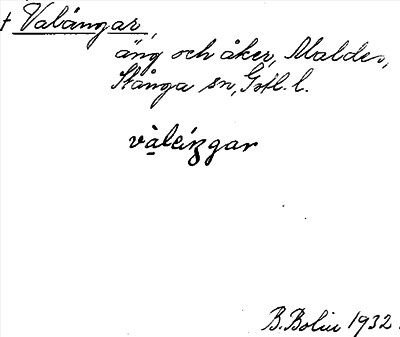 † Valängar,
äng och åker, Maldes,
Stånga sn, Gotl. l.
vàléŋgar
B. Bolin 1932.